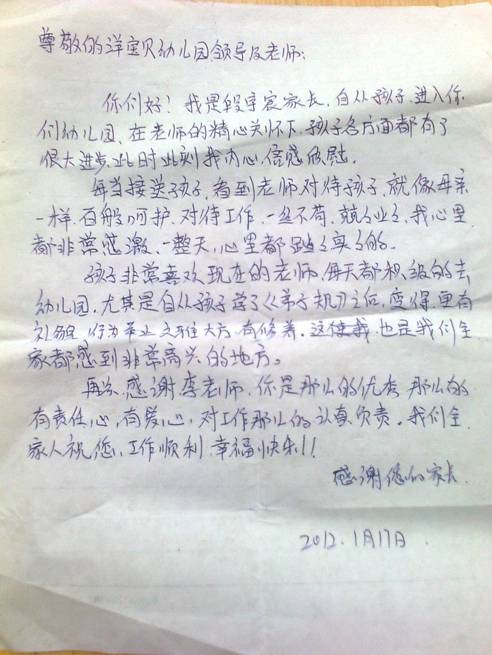 尊敬的洋宝贝幼儿园领导及老师:
你们好!我是段重宏家长,自从孩子进入你
们幼儿园,在老师的精心关怀下,孩子各方面都有了
很大进步,此时此刻我内心倍感欣慰。
每当接送孩子,看到老师对待孩子,就像母亲
一样,百般呵护,对待工作,一丝不苟,兢兢业业,我心里
都非常感激,一整天,心里都踏踏实实的。
孩子非常喜欢现在的老师,每天都积极的去
幼儿园,尤其是自从孩子学了《弟子规》之后,变得更有
礼貌,行为举止大方,有修养,也是我们全
家都感到非常高兴的地方。
再次感谢李老师,你是那么的优秀,那么的
有责任心,有爱心,对工作那么的认真负责。我们全
家人祝您,工作顺利,幸福快乐!!
感谢您的家长
2012.1月17日.